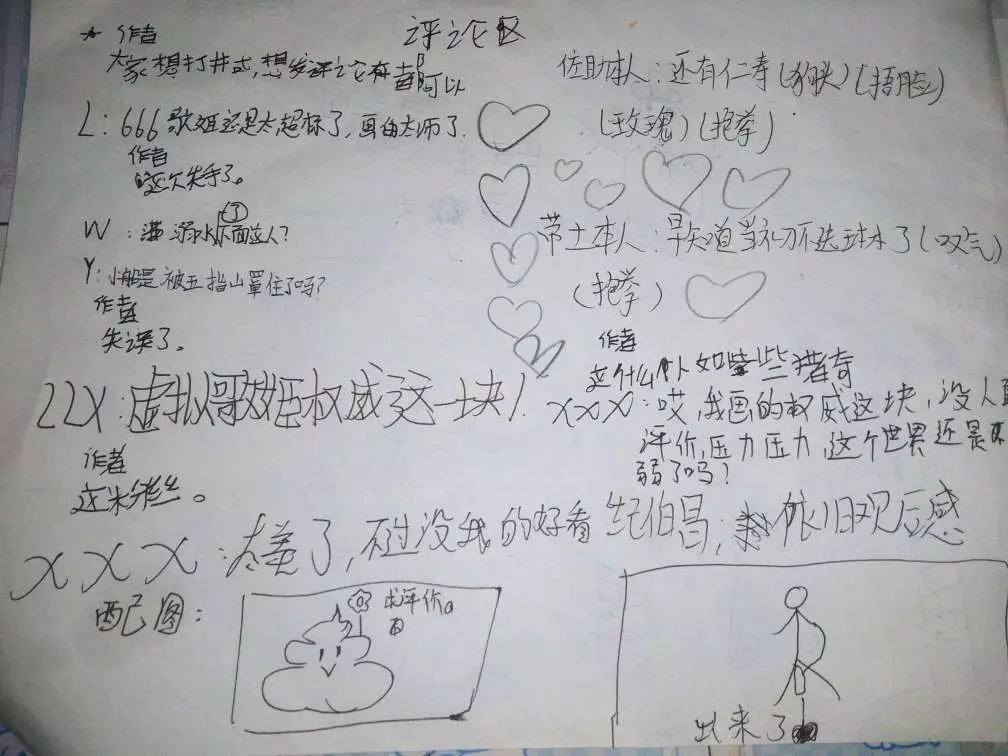 评论区
* 作者
大家想打井式,想发评论在背阿以
L:666歌姬还是太超标了,画由大师了.
作者
这次失手了。
W:弱水下面这人?
Y:小船是被五指山罩住了吗?
作者
失误了。
22X:虚拟歌姬权威这一块!
作者
这米彩丝。
佐助本人:还有仁寿(狗头)(捂脸)
(玫瑰)(抱拳)
带土本人:早知道当初不选琳了(叹气)
(抱拳)
作者
这什么 如 些猎奇
XXX:哎,我画的权威这块,没人
评价,压力压力,这个世界还是
弱了吗?
XXX:太差了,不过没我的好看 纪伯昌,依旧观后感
配己图:
求评价。
出来了